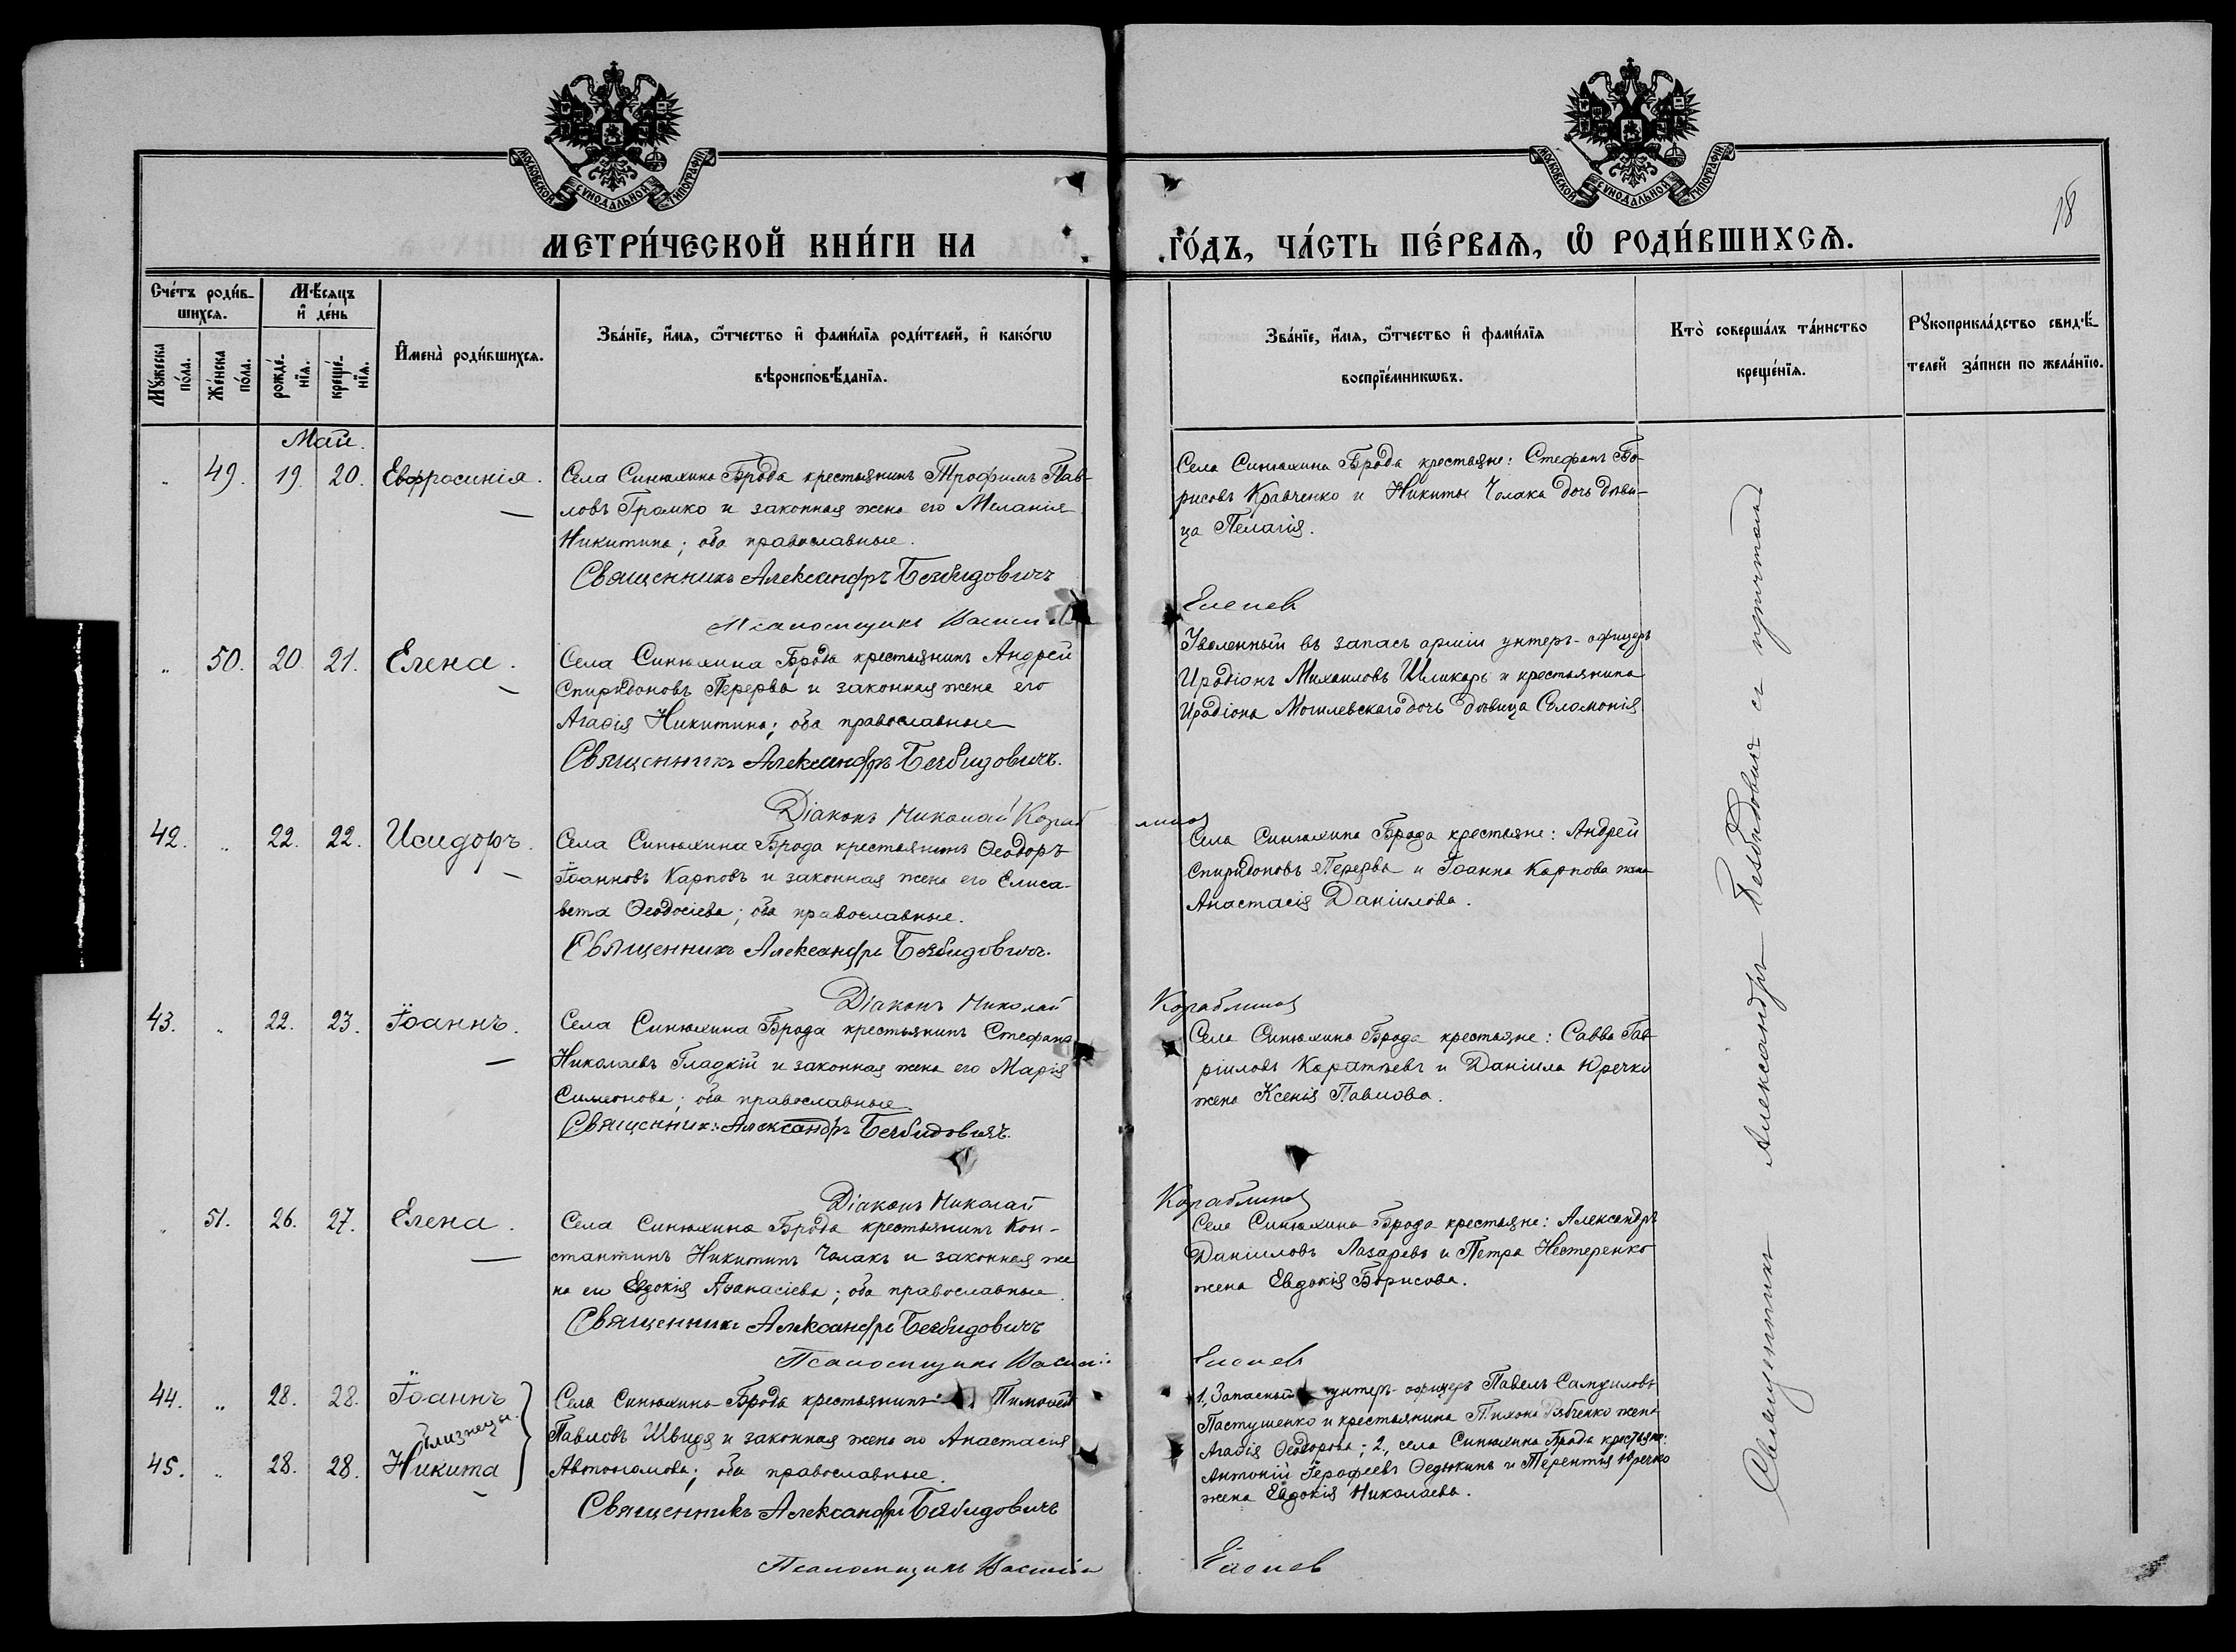 МОСКОВСКОЙ СѴНОДАЛЬНОЙ ТИПОГРАФІИ
МОСКОВСКОЙ СѴНОДАЛЬНОЙ ТИПОГРАФІИ
18
МЕТРИ́ЧЕСКОЙ КНИ́ГИ НА
ГО́ДЪ, ЧА́СТЬ ПЕ́РВАѦ, Ѡ҆ РОДИ́ВШИХСѦ.
Сче́тъ роди́в-
шихсѧ.
Мꙋ́жеска по́ла.
Же́нска по́ла.
Мѣ́сѧцъ и҆ де́нь
рожде́-
нїѧ.
креще́-
нїѧ.
И҆мена̀ роди́вшихсѧ.
Зва́нїе, и҆́мѧ, ѻ҆́тчество и҆ фами́лїѧ роди́телей, и҆ како́гѡ
вѣроисповѣ́данїѧ.
Зва́нїе, и҆́мѧ, ѻ҆́тчество и҆ фами́лїѧ
воспрїе́мникѡвъ.
Кто̀ соверша́лъ та́инство
креще́нїѧ.
Рꙋкоприкла́дство свидѣ́-
телей за́писи по жела́нїю.
Май.
„ 49. 19. 20. Евфросинія.
Села Синюхина Брода крестьянинъ Трофимъ Пав-
ловъ Громко и законная жена его Меланія
Никитина; оба православные.
Священникъ Александръ Безбидовичъ
Псаломщикъ Василій Еленевъ
Села Синюхина Брода крестьяне: Стефанъ Бо-
рисовъ Кравченко и Никиты Чолака дочь дѣви-
ца Пелагія.
„ 50. 20. 21. Елена.
Села Синюхина Брода крестьянинъ Андрей
Спиридоновъ Перерва и законная жена его
Агафія Никитина; оба православные
Священникъ Александръ Безбидовичъ.
Діаконъ Николай Кораблиновъ
Уволенный въ запасъ арміи унтеръ-офицеръ
Иродіонъ Михаиловъ Шликарь и крестьянина
Иродіона Могилевскаго дочь дѣвица Соломонія
42. „ 22. 22. Исидоръ.
Села Синюхина Брода крестьянинъ Ѳеодоръ
Іоанновъ Карповъ и законная жена его Елиса-
вета Ѳеодосіева; оба православные.
Священникъ Александръ Безбидовичъ.
Діаконъ Николай Кораблиновъ
Села Синюхина Брода крестьяне: Андрей
Спиридоновъ Перерва и Іоанна Карпова жена
Анастасія Даніилова.
43. „ 22. 23. Іоаннъ.
Села Синюхина Брода крестьянинъ Стефанъ
Николаевъ Гладкій и законная жена его Марія
Симеонова; оба православные.
Священникъ Александръ Безбидовичъ.
Діаконъ Николай Кораблиновъ
Села Синюхина Брода крестьяне: Савва Гав-
рииловъ и Даніила Юречко
жена Ксенія Павлова.
„ 51. 26. 27. Елена.
Села Синюхина Брода крестьянинъ Кон-
стантинъ Никитинъ Чолакъ и законная же
на ег Евдокія Аѳанасіева; оба православные.
Священникъ Александръ Безбидовичъ
Псаломщикъ Василій Еленевъ
Села Синюхина Брода крестьяне: Александръ
Данииловъ Лазаревъ и Петра Нестеренко
жена Евдокія Борисова.
44. „ 28. 28. Іоаннъ
близнецы.
45. „ 28. 28. Никита
Села Синюхина Брода крестьянинъ Тимоѳей
Павловъ Швидя и законная жена его Анастасія
Автономова; оба православные.
Священникъ Александръ Безбидовичъ
Псаломщикъ Василій Еленевъ
1, Запасный унтеръ-офицеръ Павелъ Самуиловъ
Пастушенко и крестьянина Тихона Рябченко жена
Агафія Ѳеодорова; 2, села Синюхина Брода крестьяне:
Антоній Іероѳеевъ Федюкинъ и Терентія Юречко
жена Евдокія Николаева.
Священникъ Александръ Безбидовичъ съ причтомъ